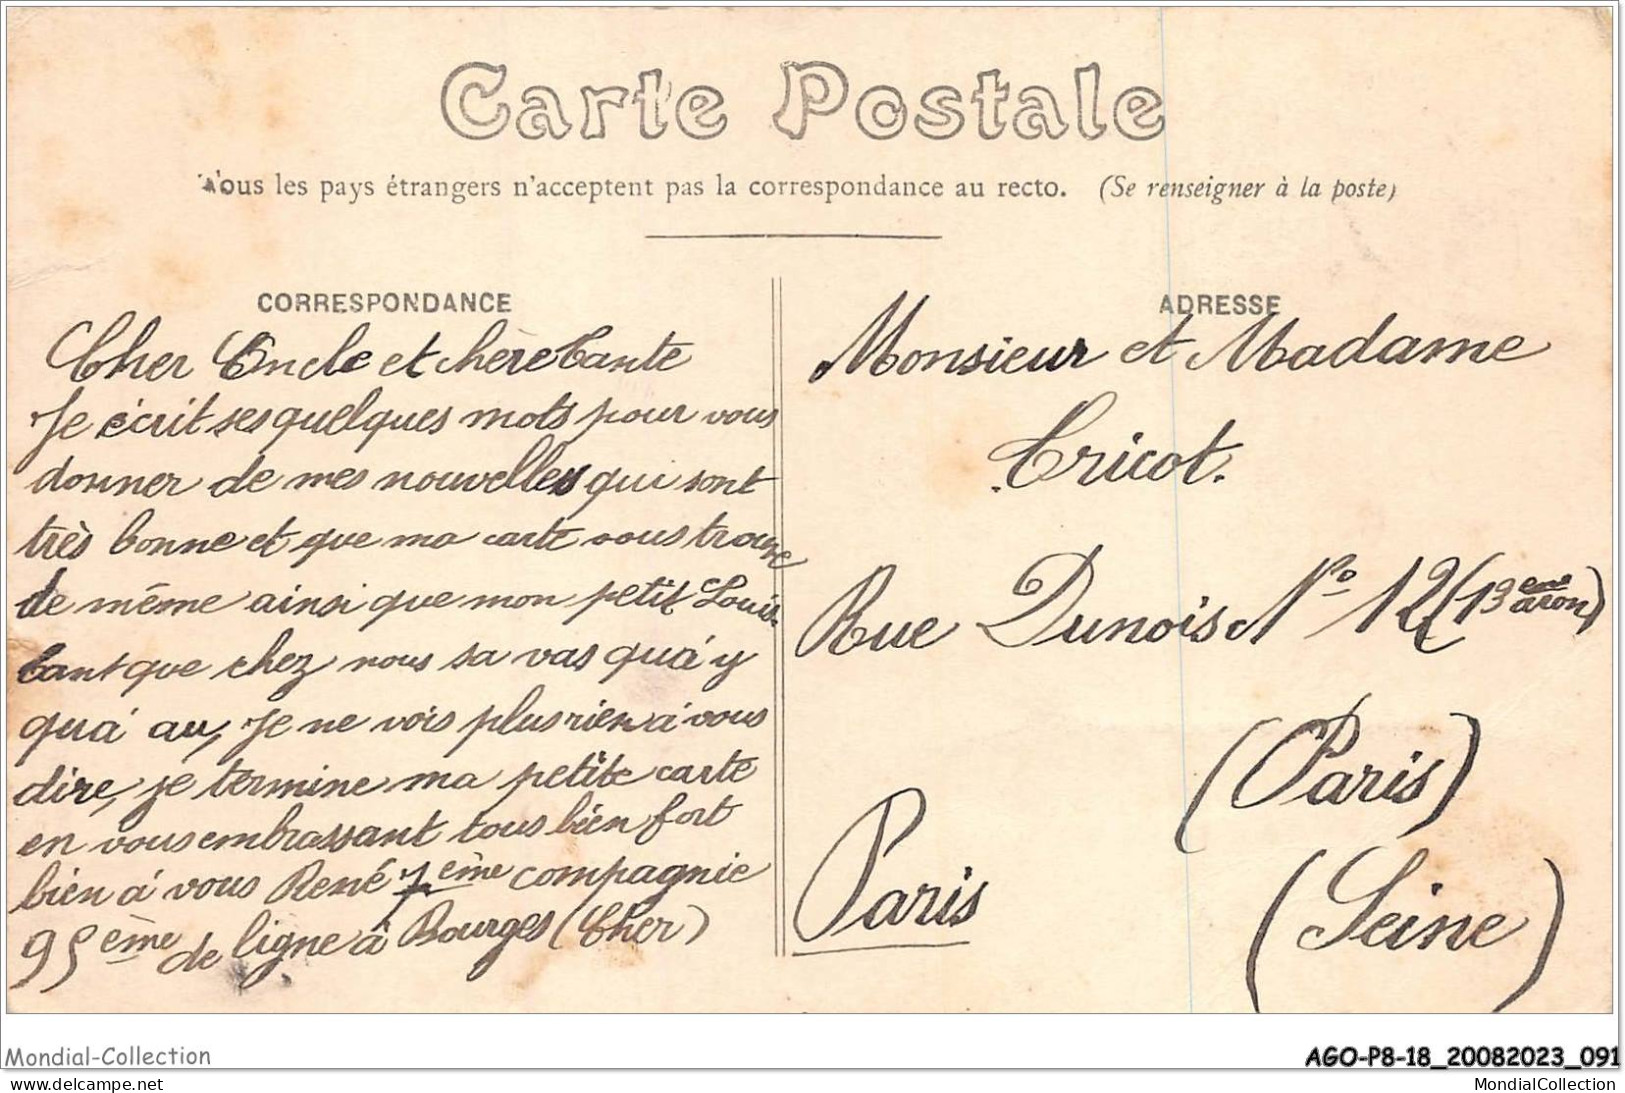 Carte Postale
Tous les pays étrangers n'acceptent pas la correspondance au recto. (Se renseigner à la poste)
CORRESPONDANCE
Cher Oncle et chère tante
Je écrit ses quelques mots pour vous
donner de mes nouvelles qui sont
très bonne et que ma carte vous trouve
de même ainsi que mon petit Louis.
tant que chez nous sa vas quá y
quá au, Je ne vois plus rien á vous
dire, je termine ma petite carte
en vous embrassant tous bien fort
bien á vous René 7ème compagnie
95ème de ligne à Bourges (Cher)
ADRESSE
Monsieur et Madame
Tricot.
Rue Dunois No 12 (13eme aron)
(Paris)
Paris
(Seine)
Mondial-Collection
AGO-P8-18_20082023_091
delcampe.net
MondialCollection